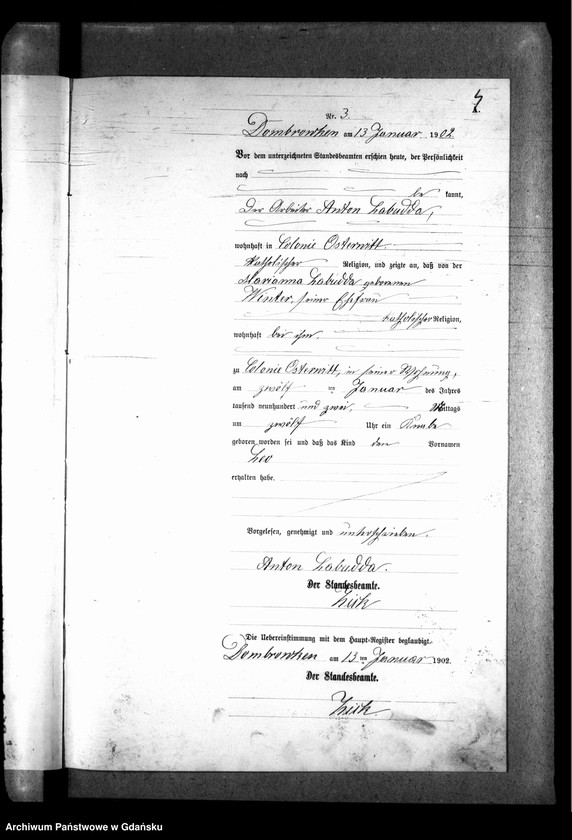 Nr. 3.
Dombrowken am 13 Januar 1902.
Vor dem unterzeichneten Standesbeamten erschien heute, der Persönlichkeit
nach
be kannt,
Der Arbeiter Anton Labudda,
wohnhaft in Colonie Osterwitt
Katholischer Religion, und zeigte an, daß von der
Marianna Labudda geborenen
Winter, seiner Ehefrau
katholischer Religion,
wohnhaft bei ihm.
zu Colonie Osterwitt, in seiner Wohnung,
am zwölf ten Januar des Jahres
tausend neunhundert und zwei, Mittags
um zwölf Uhr ein Knabe
geboren worden sei und daß das Kind den Vornamen
Leo
erhalten habe.
Vorgelesen, genehmigt und unterschrieben.
Anton Labudda.
Der Standesbeamte.
Die Uebereinstimmung mit dem Haupt-Register beglaubigt
Dombrowken am 13 ten Januar 1902.
Der Standesbeamte.
Archiwum Państwowe w Gdańsku